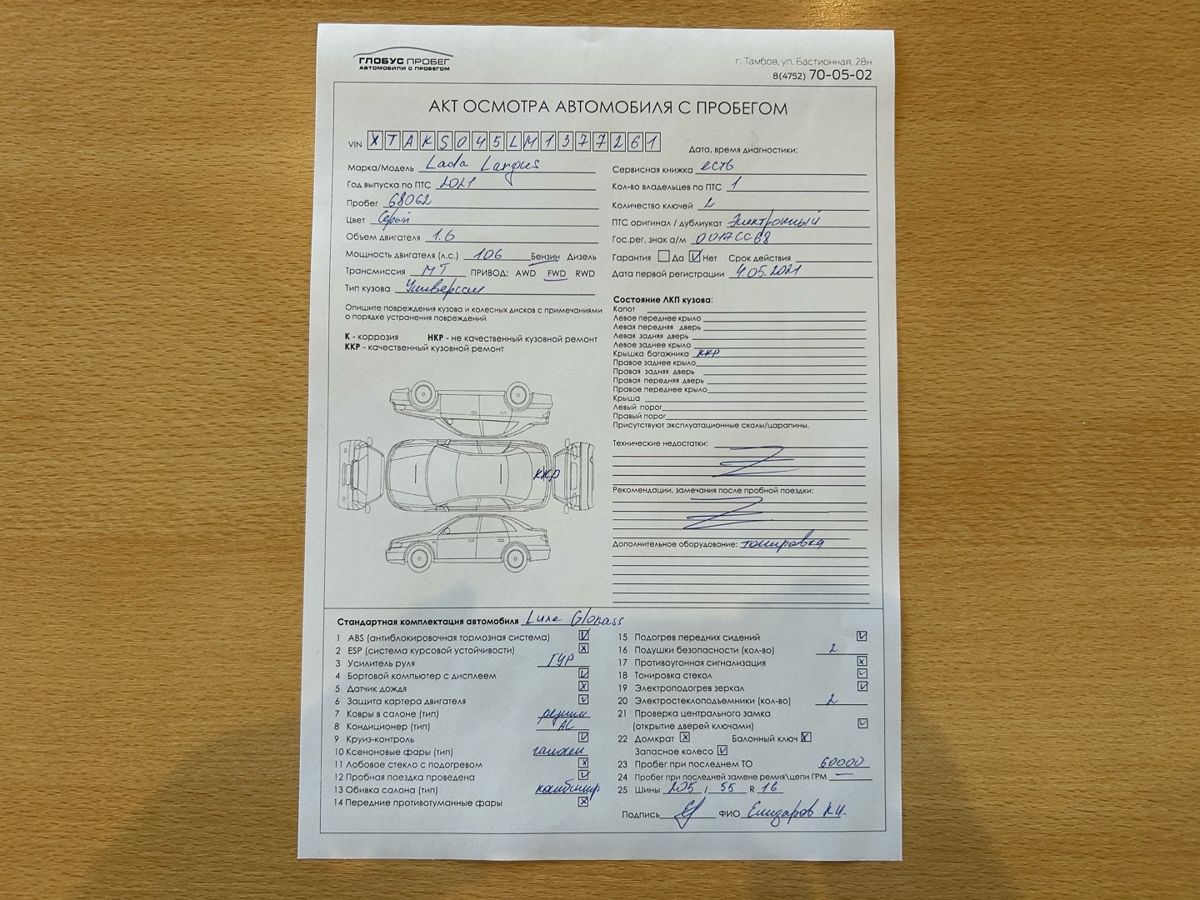 ГЛОБУС ПРОБЕГ
АВТОМОБИЛИ С ПРОБЕГОМ
г. Тамбов, ул. Бастионная, 28н
8(4752) 70-05-02
АКТ ОСМОТРА АВТОМОБИЛЯ С ПРОБЕГОМ
VIN XTAKS045LM1377261
Дата, время диагностики:
Марка/Модель Lada Largus
Год выпуска по ПТС 2021
Пробег 68062
Цвет Серый
Объем двигателя 1.6
Мощность двигателя (л.с.) 106 Бензин Дизель
Трансмиссия МТ ПРИВОД: AWD FWD RWD
Тип кузова Универсал
Опишите повреждения кузова и колесных дисков с примечаниями
о порядке устранения повреждений
К - коррозия НКР - не качественный кузовной ремонт
ККР - качественный кузовной ремонт
ККР
Сервисная книжка есть
Кол-во владельцев по ПТС 1
Количество ключей 2
ПТС оригинал / дубликат Электронный
Гос.рег. знак а/м О017СС68
Гарантия Да Нет Срок действия
Дата первой регистрации 4.05.2021
Состояние ЛКП кузова:
Капот
Левое переднее крыло
Левая передняя дверь
Левая задняя дверь
Левое заднее крыло
Крышка багажника ККР
Правое заднее крыло
Правая задняя дверь
Правая передняя дверь
Правое переднее крыло
Крыша
Левый порог
Правый порог
Присутствуют эксплуатационные сколы/царапины.
Технические недостатки:
Рекомендации, замечания после пробной поездки:
Дополнительное оборудование: тонировка
Стандартная комплектация автомобиля Luxe Glonass
1 ABS (антиблокировочная тормозная система)
2 ESP (система курсовой устойчивости)
3 Усилитель руля ГУР
4 Бортовой компьютер с дисплеем
5 Датчик дождя
6 Защита картера двигателя
7 Ковры в салоне (тип) резин
8 Кондиционер (тип) АС
9 Круиз-контроль
10 Ксеноновые фары (тип) галоген
11 Лобовое стекло с подогревом
12 Пробная поездка проведена
13 Обивка салона (тип) комбинир
14 Передние противотуманные фары
15 Подогрев передних сидений
16 Подушки безопасности (кол-во) 2
17 Противоугонная сигнализация
18 Тонировка стекол
19 Электроподогрев зеркал
20 Электростеклоподъемники (кол-во) 2
21 Проверка центрального замка
(открытие дверей ключами)
22 Домкрат Балонный ключ
Запасное колесо
23 Пробег при последнем ТО 60000
24 Пробег при последней замене ремня\цепи ГРМ —
25 Шины 205 / 55 R 16
Подпись ФИО Елизаров К.И.